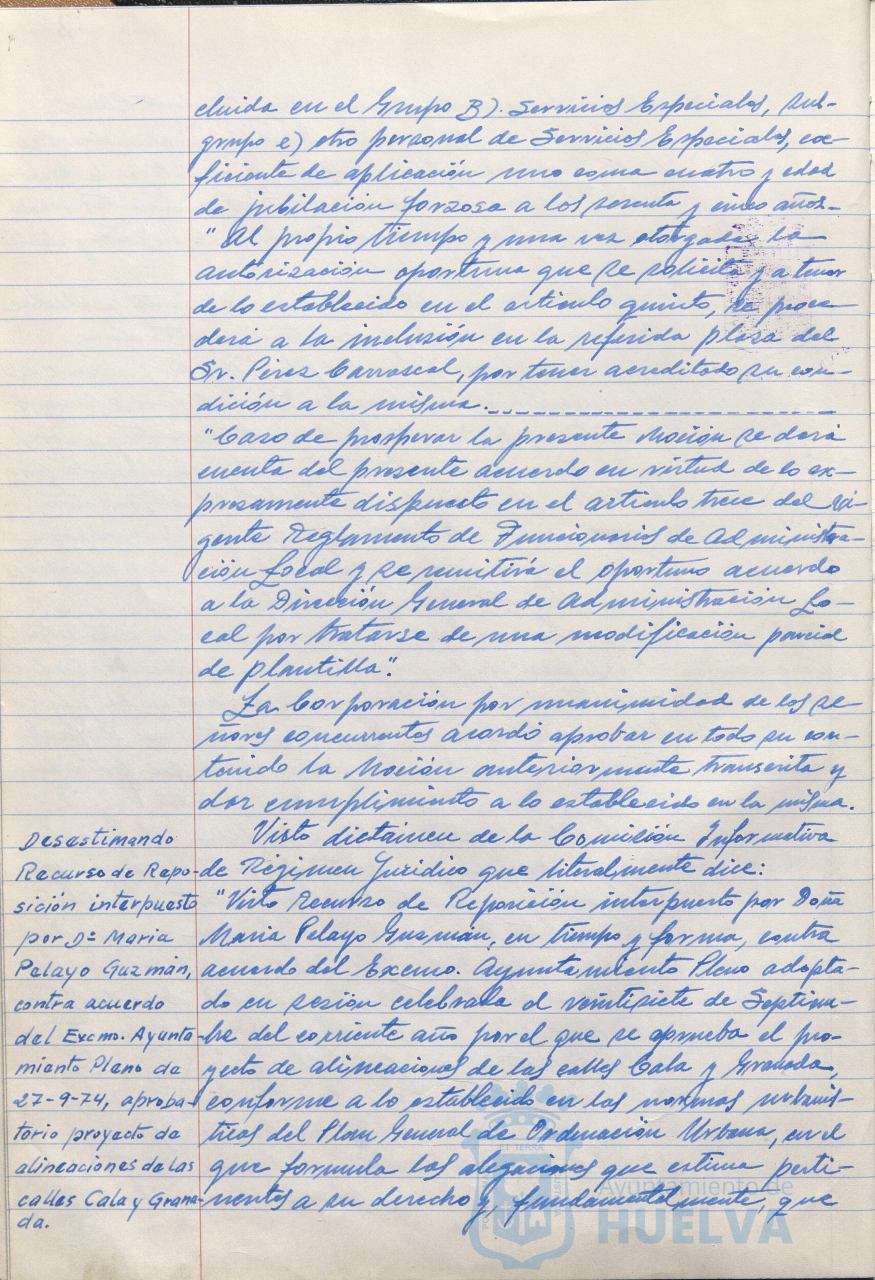 cluida en el Grupo B). Servicios Especiales, sub-
grupo e) otro personal de Servicios Especiales, coe-
ficiente de aplicación uno coma cuatro y edad
de jubilación forzosa a los sesenta y cinco años.-
"Al propio tiempo y una vez otorgada la
autorización oportuna que se solicita y a tenor
de lo establecido en el articulo quinto, se proce-
derá a la inclusión en la referida plaza del
Sr. Pérez Carrascal, por tener acreditado su con-
dición a la misma.
"Caso de prosperar la presente Moción se dará
cuenta del presente acuerdo en virtud de lo ex-
presamente dispuesto en el articulo trece del vi-
gente Reglamento de Funcionarios de Administra-
ción Local y se remitirá el oportuno acuerdo
a la Dirección General de Administración Lo-
cal por tratarse de una modificación parcial
de plantilla".
La Corporación por unanimidad de los se-
ñores concurrentes acordó aprobar en todo su con-
tenido la Moción anteriormente transcrita y
dar cumplimiento a lo establecido en la misma.
Desestimando
Recurso de Repo-
sición interpuesto
por Dª Maria
Pelayo Guzmán,
contra acuerdo
del Excmo. Ayunta-
miento Pleno de
27-9-74, aproba-
torio proyecto de
alineaciones de las
calles Cala y Grana-
da.
Visto dictamen de la Comisión Informativa
de Régimen Juridico que literalmente dice:
"Visto Recurso de Reposición interpuesto por Doña
Maria Pelayo Guzmán, en tiempo y forma, contra
acuerdo del Excmo. Ayuntamiento Pleno adopta-
do en sesión celebrada el veintisiete de Septiem-
bre del corriente año por el que se aprueba el pro-
yecto de alineaciones de las calles Cala y Granada,
conforme a lo establecido en las normas urbanis-
ticas del Plan General de Ordenación Urbana, en el
que formula las alegaciones que estima perti-
nentes a su derecho y, fundamentalmente, que
Ayuntamiento de
HUELVA